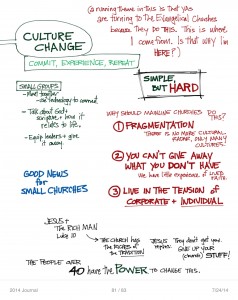 (A running theme in this is that YAs
are turning to The Evangelical Churches
because They do this. This is where
I came from. Is that why I'm
HERE?)
CULTURE
CHANGE
COMMIT, EXPERIENCE, REPEAT
SIMPLE,
BUT HARD
SMALL GROUPS-
- Meet together
- use technology to connect.
- Talk about God +
scripture + how it
relates to life.
- Equip leaders + give
it away.
WHY SHOULD MAINLINE CHURCHES DO
THIS?
① FRAGMENTATION
THERE IS NO MORE CULTURAL
RADAR, ONLY MANY
CULTURES.
② YOU CAN'T GIVE AWAY
WHAT YOU DON'T HAVE
WE have little experience of LIVED
FAITH.
③ LIVE IN THE TENSION OF
CORPORATE + INDIVIDUAL
GOOD NEWS
for
SMALL CHURCHES
JESUS +
The RICH MAN
Luke 10
THE CHURCH HAS
The RICHES of
the TRADITION
JESUS
They don't get you.
GIVE UP YOUR
(church) STUFF!
THE PEOPLE OVER
40 have the POWER TO CHANGE THIS.
2014 Journal
51 / 60
7/24/14